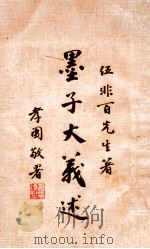 伍非百先生著
墨子大義述
孝園敬署
www.mtoou.info